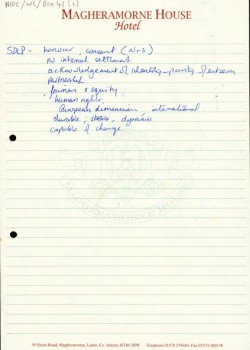 NIDC/WC/Box 41 (2)
MAGHERAMORNE HOUSE
Hotel
SDLP - honour, consent (N+S)
no internal settlement
acknowledgement of identity - parity of esteem
partnership
fairness & equity
human rights
European dimension, international
durable, stable, dynamic
capable of change
MAGHERAMORNE HOUSE
59 Shore Road, Magheramorne, Larne, Co. Antrim, BT40 3HW Telephone: 01574 279444 Fax: 01574 260138